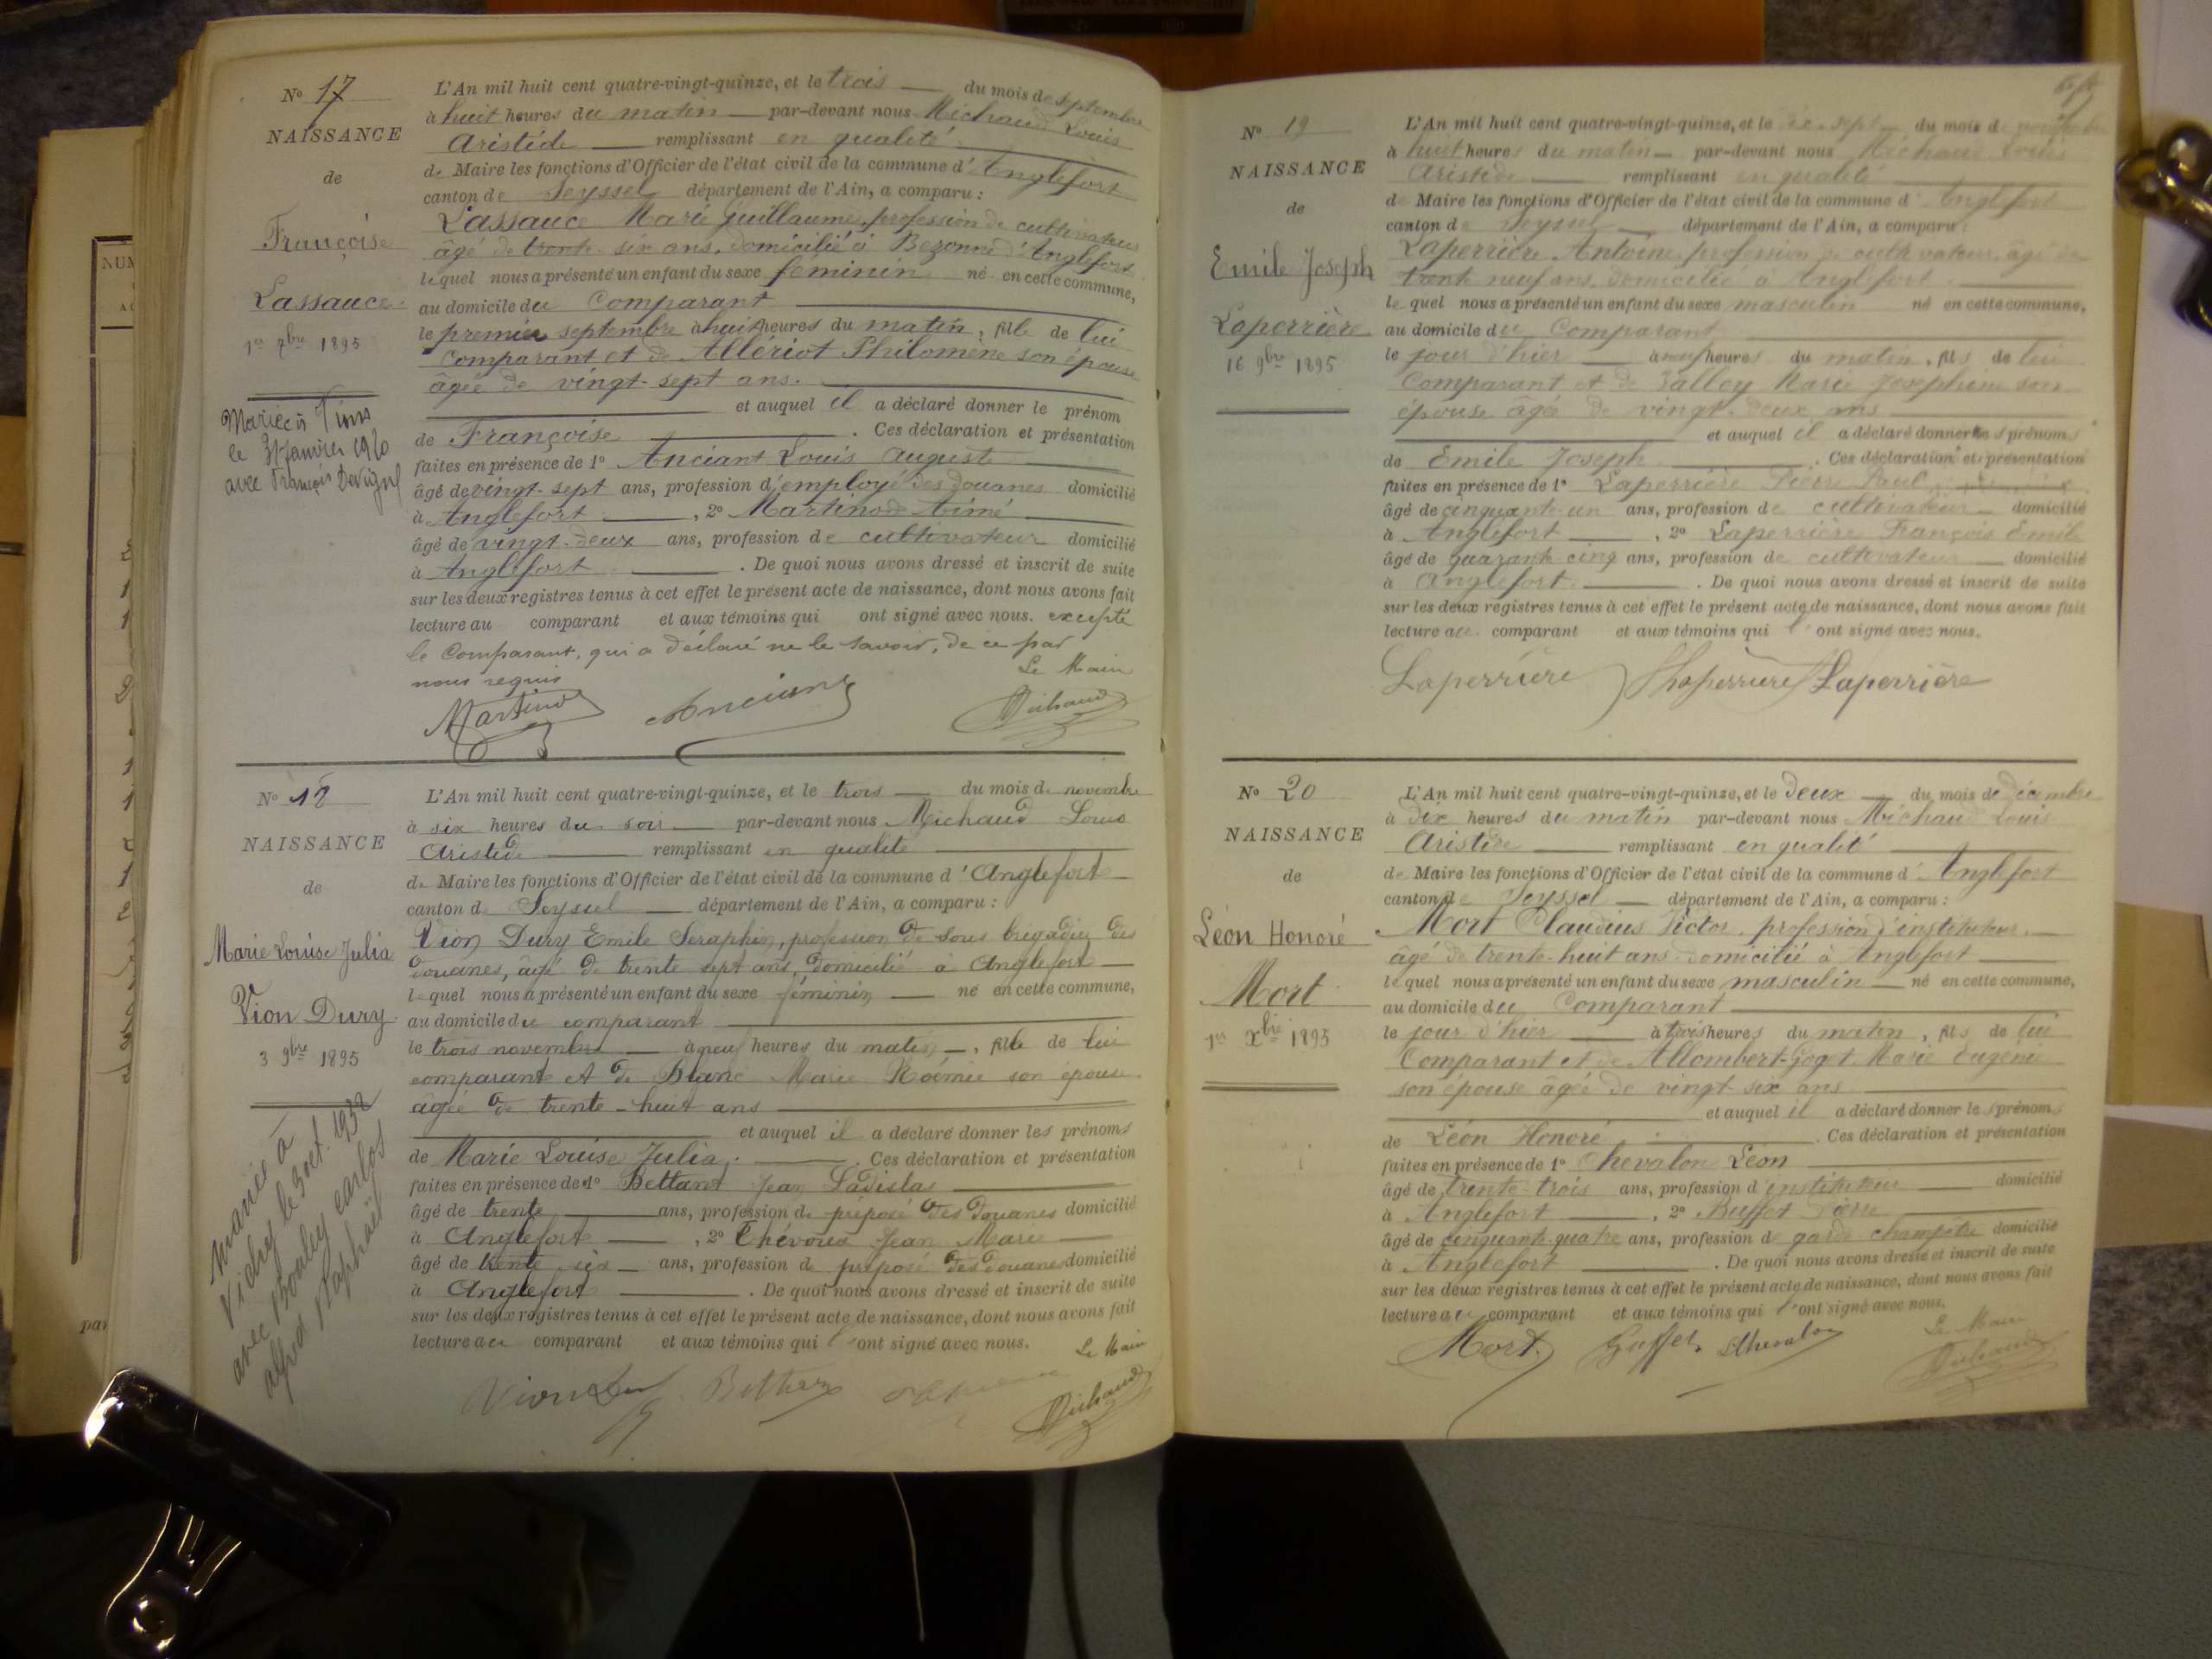 N° 17
NAISSANCE
de
Françoise
Lassauce
1er 7bre 1895
Mariée à
le 31 Janvier 1920
avec François
L'An mil huit cent quatre-vingt-quinze, et le trois du mois de septembre
à huit heures du matin par-devant nous Michaud Louis
Aristide remplissant en qualité
de Maire les fonctions d'Officier de l'état civil de la commune d'Anglefort
canton de Seyssel département de l'Ain, a comparu :
Lassauce Marie Guillaume, profession de cultivateur
âgé de trente-six ans, domicilié à Bezonne d'Anglefort
lequel nous a présenté un enfant du sexe féminin né en cette commune,
au domicile du Comparant
le premier septembre à huit heures du matin, fille de lui
Comparant et de Allériot Philomène son épouse
âgée de vingt-sept ans.
et auquel il a déclaré donner le prénom
de Françoise . Ces déclaration et présentation
faites en présence de 1° Anciant Louis Auguste
âgé de vingt-sept ans, profession d'employé des douanes domicilié
à Anglefort , 2° Martinod Aimé
âgé de vingt-deux ans, profession de cultivateur domicilié
à Anglefort . De quoi nous avons dressé et inscrit de suite
sur les deux registres tenus à cet effet le présent acte de naissance, dont nous avons fait
lecture au comparant et aux témoins qui ont signé avec nous. excepté
le Comparant, qui a déclaré ne le savoir, de ce par
nous requis
Le Maire
Martinod Anciant Michaud
N° 18
NAISSANCE
de
Marie Louise Julia
Vion Dury
3 9bre 1895
mariée à
Vichy le 3 oct. 1932
avec Carlos
Raphaël
L'An mil huit cent quatre-vingt-quinze, et le trois du mois de novembre
à six heures du soir par-devant nous Michaud Louis
Aristide remplissant en qualité
de Maire les fonctions d'Officier de l'état civil de la commune d'Anglefort
canton de Seyssel département de l'Ain, a comparu :
Vion Dury Emile Seraphin, profession de sous brigadier des
douanes, âgé de trente sept ans, domicilié à Anglefort
lequel nous a présenté un enfant du sexe féminin né en cette commune,
au domicile du comparant
le trois novembre à neuf heures du matin, fille de lui
comparant et de Blanc Marie Noémie son épouse
âgée de trente-huit ans
et auquel il a déclaré donner les prénoms
de Marie Louise Julia. Ces déclaration et présentation
faites en présence de 1° Bettant Jean Ladislas
âgé de trente ans, profession de préposé des Douanes domicilié
à Anglefort , 2° Thévoux Jean Marie
âgé de trente six ans, profession de préposé des Douanes domicilié
à Anglefort . De quoi nous avons dressé et inscrit de suite
sur les deux registres tenus à cet effet le présent acte de naissance, dont nous avons fait
lecture au comparant et aux témoins qui l'ont signé avec nous.
Le Maire
Michaud
N° 19
NAISSANCE
de
Emile Joseph
Laperrière
16 9bre 1895
L'An mil huit cent quatre-vingt-quinze, et le dix-sept du mois de novembre
à huit heures du matin par-devant nous Michaud Louis
Aristide remplissant en qualité
de Maire les fonctions d'Officier de l'état civil de la commune d'Anglefort
canton de Seyssel département de l'Ain, a comparu :
Laperrière Antoine, profession de cultivateur, âgé de
trente neuf ans, domicilié à Anglefort
le quel nous a présenté un enfant du sexe masculin né en cette commune,
au domicile du Comparant
le jour d'hier à neuf heures du matin, fils de lui
Comparant et de Valley Marie Josephine son
épouse âgée de vingt-deux ans
et auquel il a déclaré donner les prénoms
de Emile Joseph . Ces déclaration et présentation
faites en présence de 1° Laperrière Pierre Paul
âgé de cinquante-un ans, profession de cultivateur domicilié
à Anglefort , 2° Laperrière François Emile
âgé de quarante-cinq ans, profession de cultivateur domicilié
à Anglefort . De quoi nous avons dressé et inscrit de suite
sur les deux registres tenus à cet effet le présent acte de naissance, dont nous avons fait
lecture au comparant et aux témoins qui l'ont signé avec nous.
Laperrière Laperrière Laperrière
N° 20
NAISSANCE
de
Léon Honoré
Mort
1er Xbre 1895
L'An mil huit cent quatre-vingt-quinze, et le deux du mois de décembre
à dix heures du matin par-devant nous Michaud Louis
Aristide remplissant en qualité
de Maire les fonctions d'Officier de l'état civil de la commune d'Anglefort
canton de Seyssel département de l'Ain, a comparu :
Mort Claudius Victor, profession d'instituteur,
âgé de trente-huit ans domicilié à Anglefort
lequel nous a présenté un enfant du sexe masculin né en cette commune,
au domicile du Comparant
le jour d'hier à trois heures du matin, fils de lui
Comparant et de Allombert-goget Marie Eugénie
son épouse âgée de vingt-six ans
et auquel il a déclaré donner les prénoms
de Léon Honoré . Ces déclaration et présentation
faites en présence de 1° Chevalon Léon
âgé de trente-trois ans, profession d'instituteur domicilié
à Anglefort , 2° Buffet Pierre
âgé de cinquante-quatre ans, profession de garde-champêtre domicilié
à Anglefort . De quoi nous avons dressé et inscrit de suite
sur les deux registres tenus à cet effet le présent acte de naissance, dont nous avons fait
lecture au comparant et aux témoins qui l'ont signé avec nous.
Le Maire
Mort Buffet LChevalon Michaud